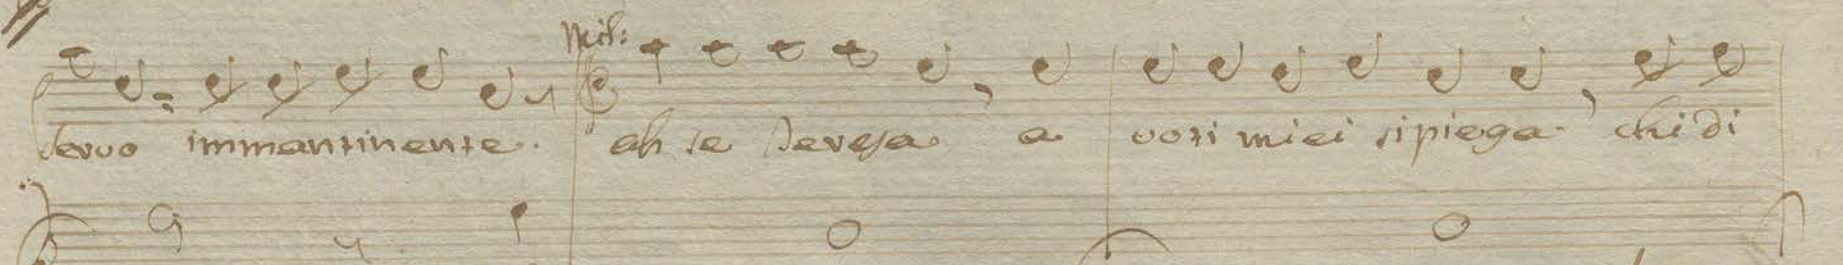 Mil:
servo immantinente. ah se Teresa a voti miei si piega chi di